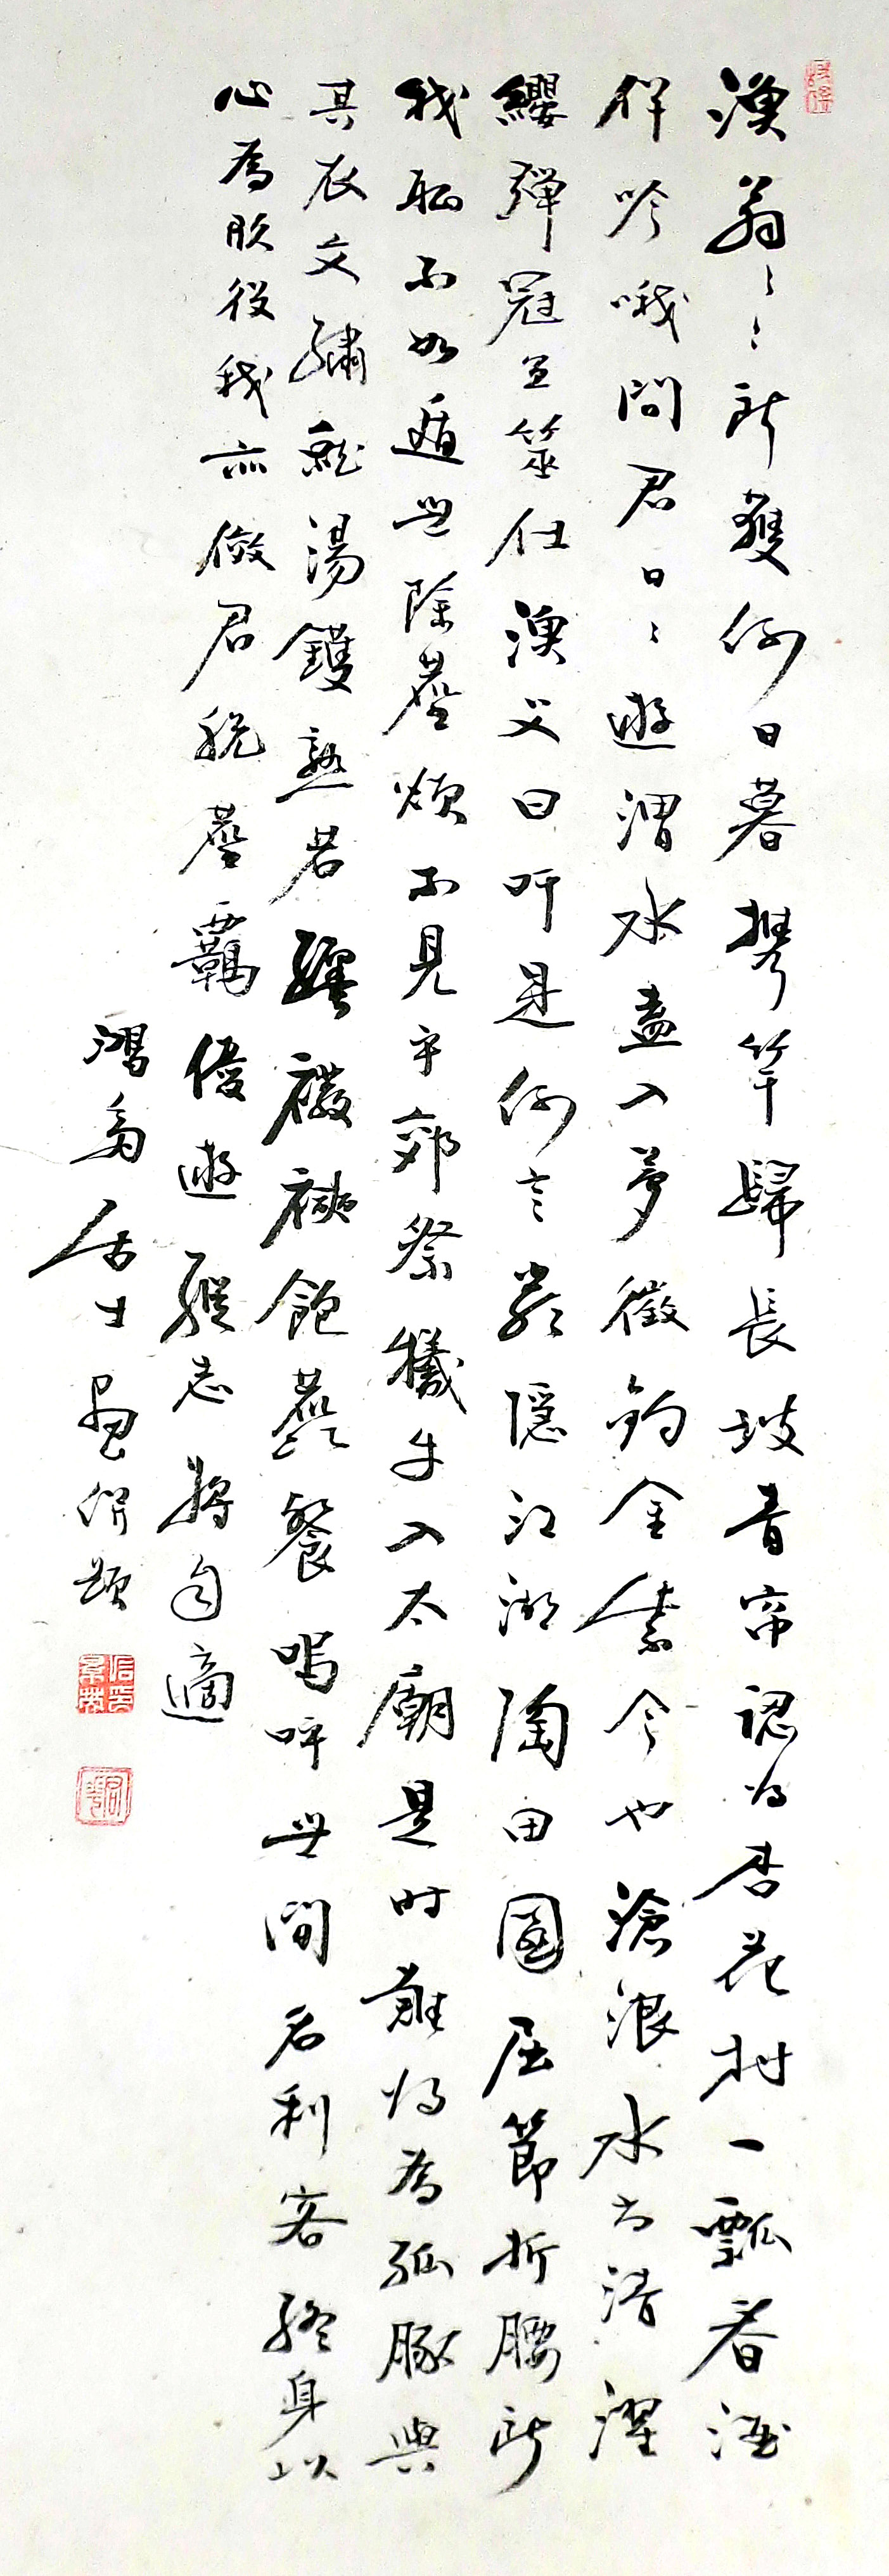 漁翁〻〻所獲何日暮攜竿歸長坡青帘認為杏花村一瓢春酒
伴吟哦問君日〻遊渭水盍入夢徵釣金紫今也滄浪水方清濯
纓彈冠宜筮仕漁父曰吁是何言嚴隱江湖陶田園屈節折腰所
我恥不如遁世除塵煩不見乎郊祭犧牛入太廟是時難得為孤豚與
其衣文繡就湯鑊孰若飽藜餐嗚呼世間名利客終身以
心為形役我亦傚君脫塵羈優遊縱志將自適
鴻嶌居士畫併題